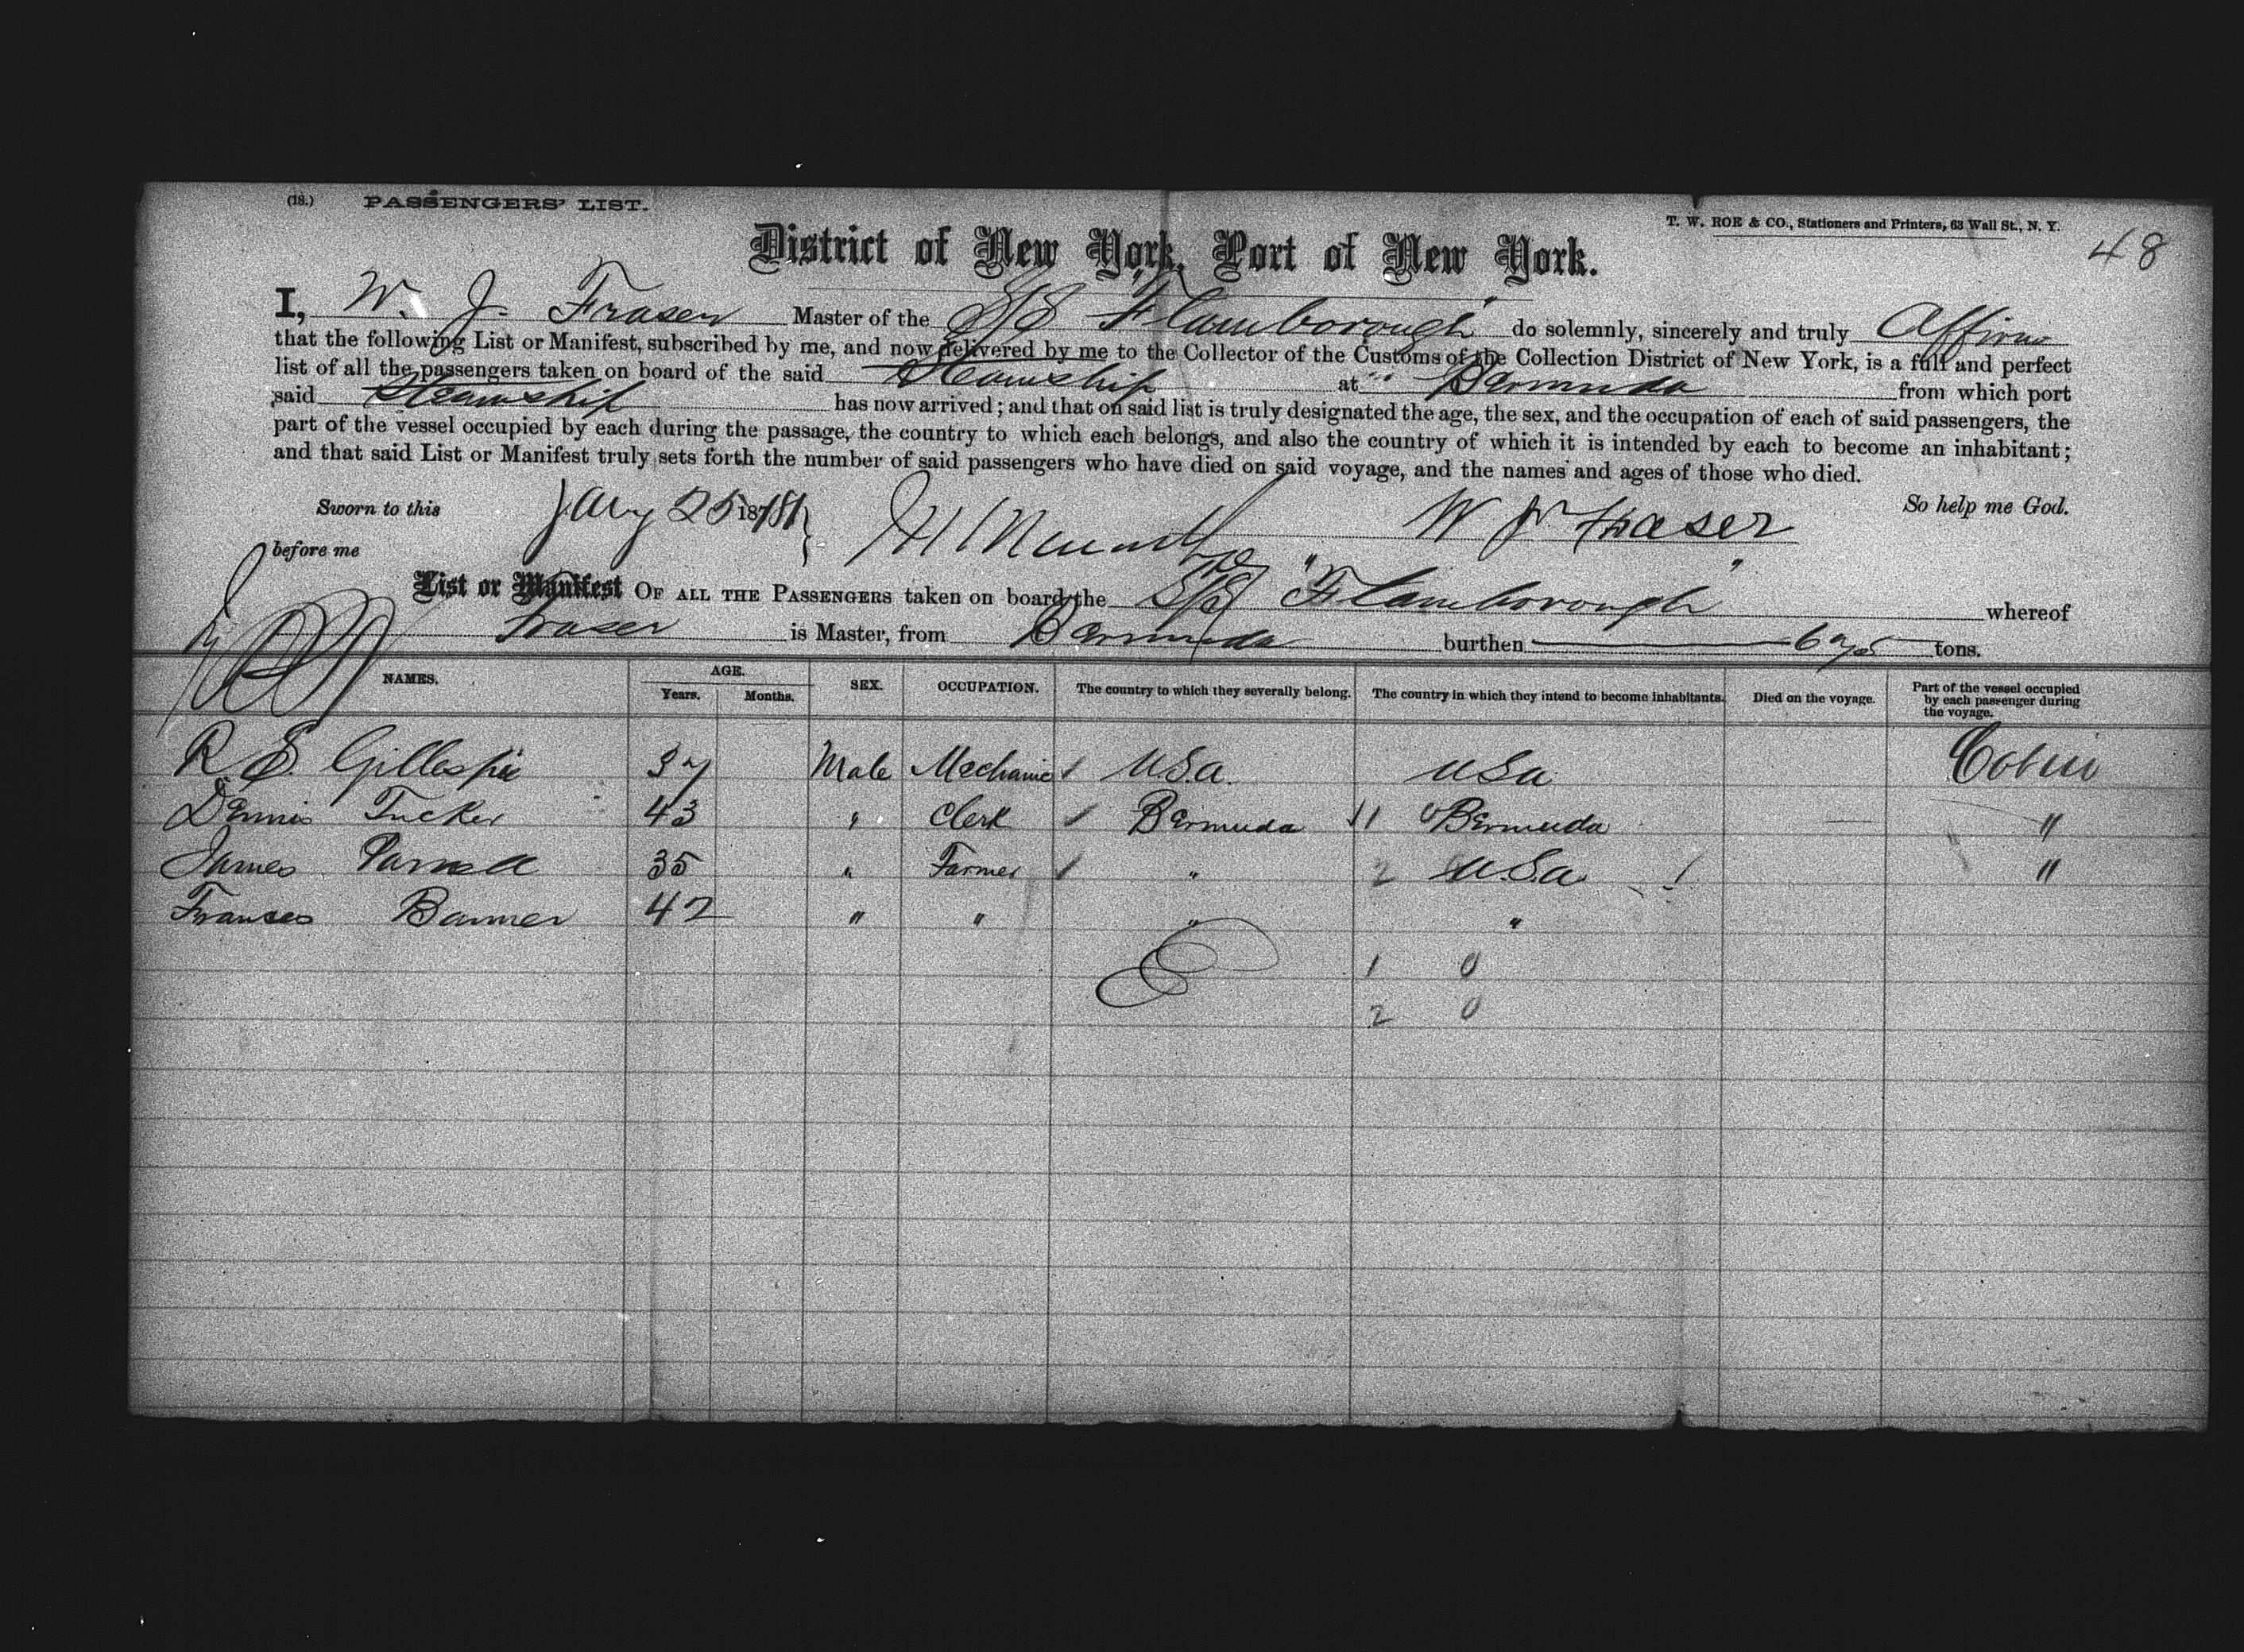 (18.) PASSENGERS' LIST.
T. W. ROE & CO., Stationers and Printers, 63 Wall St., N. Y.
48
District of New York, Port of New York.
I, W. J. Fraser Master of the S/S "Flamborough" do solemnly, sincerely and truly Affirm
that the following List or Manifest, subscribed by me, and now delivered by me to the Collector of the Customs of the Collection District of New York, is a full and perfect
list of all the passengers taken on board of the said Steamship at Bermuda from which port
said Steamship has now arrived; and that on said list is truly designated the age, the sex, and the occupation of each of said passengers, the
part of the vessel occupied by each during the passage, the country to which each belongs, and also the country of which it is intended by each to become an inhabitant;
and that said List or Manifest truly sets forth the number of said passengers who have died on said voyage, and the names and ages of those who died.
Sworn to this Jany 25 1881 W J Fraser So help me God.
before me
List or Manifest OF ALL THE PASSENGERS taken on board the S/S "Flamborough" whereof
Fraser is Master, from Bermuda burthen tons.
NAMES. AGE. Years. Months. SEX. OCCUPATION. The country to which they severally belong. The country in which they intend to become inhabitants. Died on the voyage. Part of the vessel occupied by each passenger during the voyage.
R. S. Gillespie 37 Male Mechanic U.S.a. U.S.a Cabin
Dennis Tucker 43 " Clerk Bermuda 11 Bermuda "
James 35 " Farmer " 2 U.S.a 1 "
Frances 42 " " " "
1 0
2 0